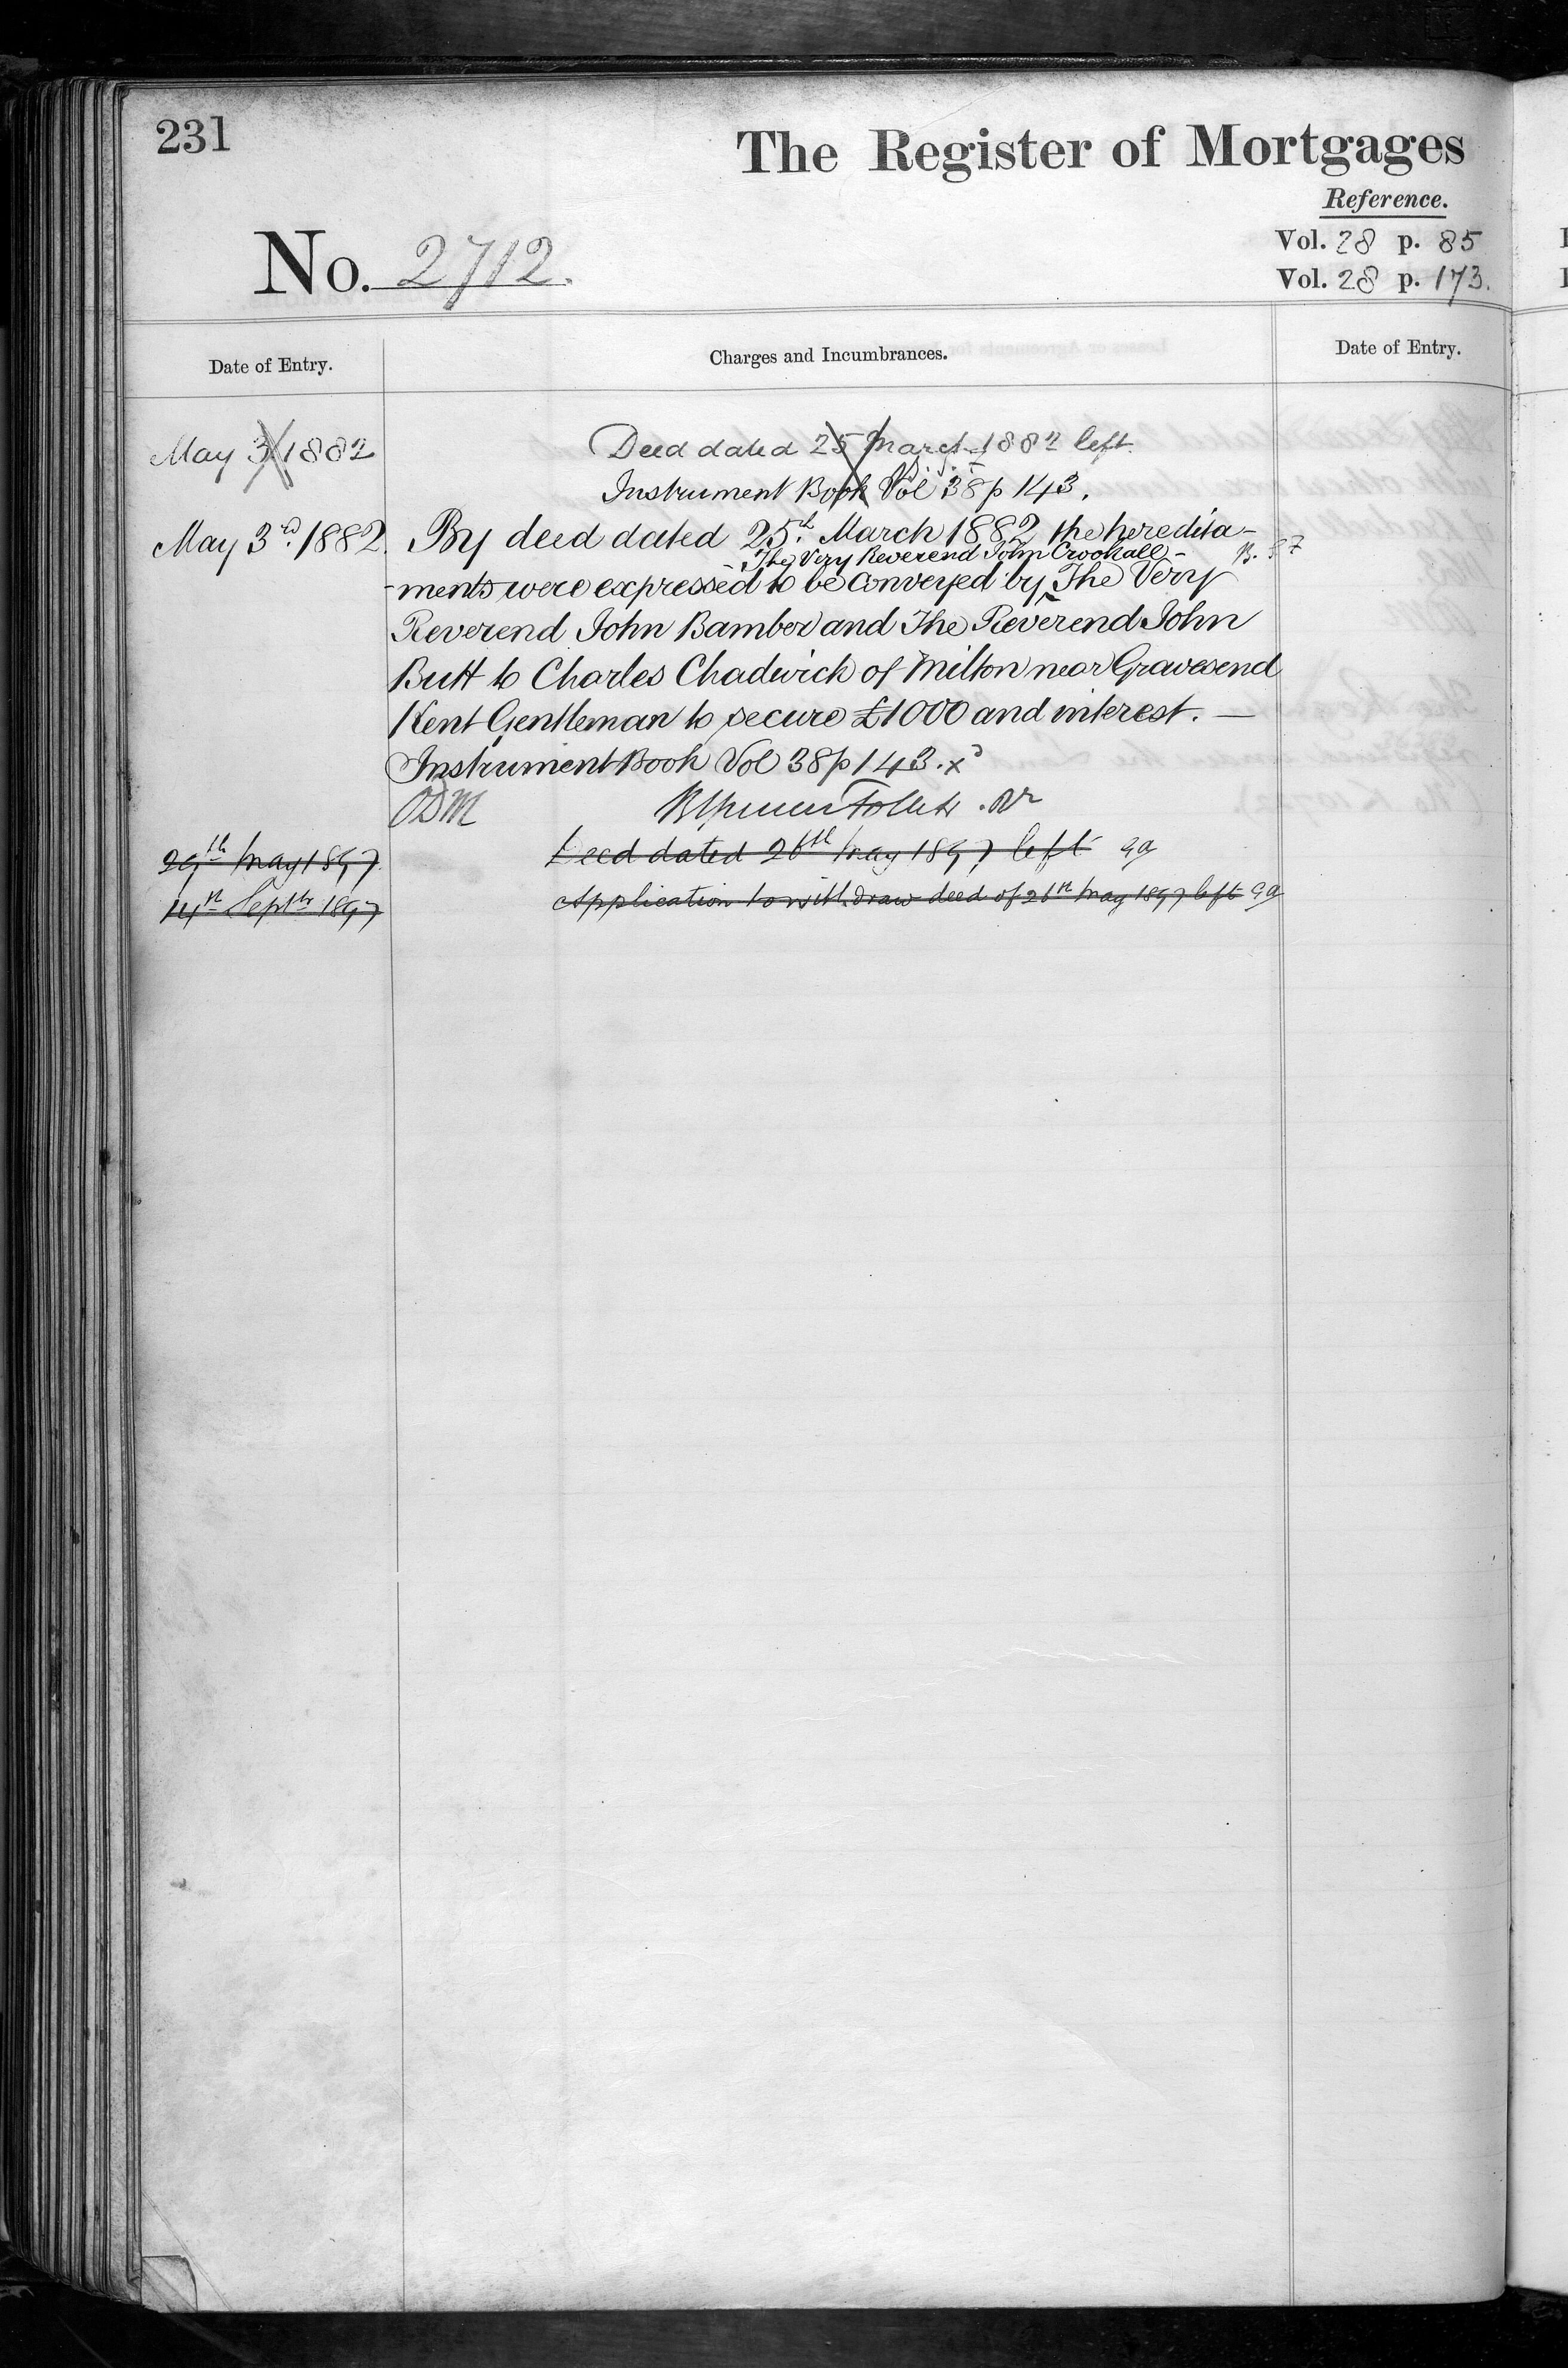 231
The Register of Mortgages
Reference.
No. 2712.
Vol. 28 p. 85
Vol. 28 p. 173.
Date of Entry.
Charges and Incumbrances.
Date of Entry.
May 3 1882
Deed dated 25 March 1882 left.
Instrument Book Vol 38 p 143.
May 3rd. 1882.
By deed dated 25th March 1882 the heredita-
The Very Reverend John Crookall -
-ments were expressed to be conveyed by The Very
Reverend John Bamber and The Reverend John
Butt to Charles Chadwick of Milton near Gravesend
Kent Gentleman to secure £1000 and interest. —
Instrument Book Vol 38 p 143. x
ODM
29th May 1897.
Deed dated 26th May 1897 left
14th Septbr 1897
Application to withdraw deed of 26th May 1897 left